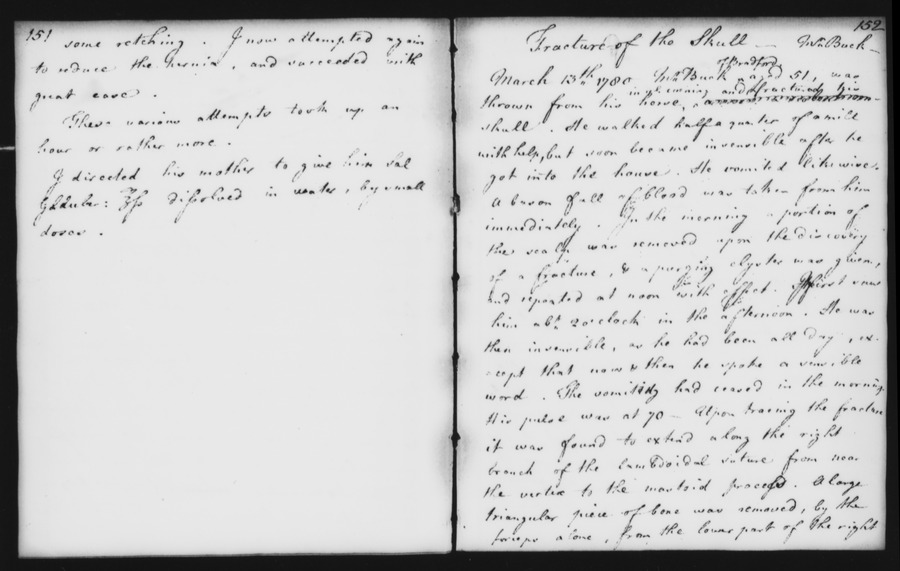 151
some retching. I now attempted again
to reduce the hernia, and succeeded with
great ease.
These various attempts took up an
hour or rather more.
I directed his mother to give him Sal
Glauber: ʒſs dissolved in water, by small
doses.
152
Fracture of the Skull — Wm Buck —
of Bradford
March 13th 1780. Wm Buck aged 51, was
in ye evening and fractured his
thrown from his horse,
skull. He walked half a quarter of a mile
with help, but soon became insensible after he
got into the house. He vomited likewise.
A bason full of blood was taken from him
immediately. In the morning a portion of
the scalp was removed upon the discovery
of a fracture, & a purging clyster was given,
and repeated at noon with effect. I first saw
him abt. 2 o'clock in the afternoon. He was
then insensible, as he had been all day, ex-
cept that now & then he spoke a sensible
word. The vomiting had ceased in the morning.
His pulse was at 70 — Upon tracing the fracture
it was found to extend along the right
branch of the lambdoidal suture from near
the vertex to the mastoid process. A large
triangular piece of bone was removed, by the
forceps alone, from the lower part of the right